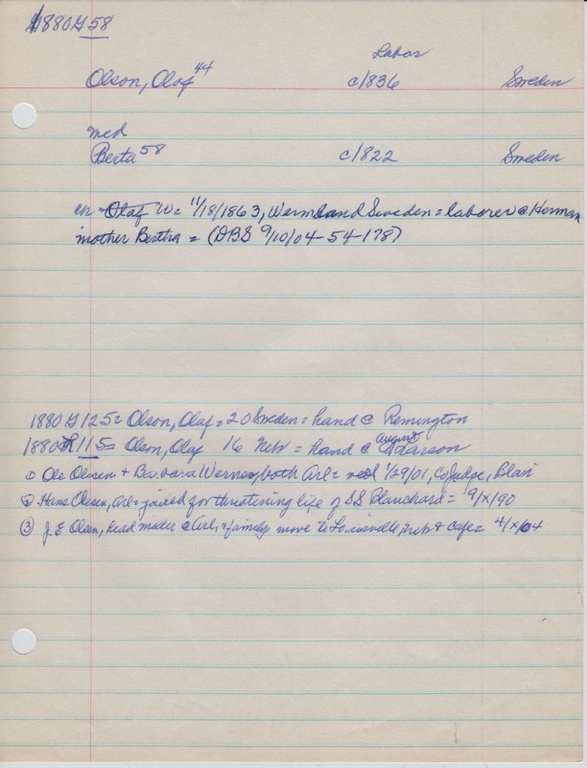 1880 H 58
Labor
Olson, Olof 44 c/836 Sweden
med
Berta 58 c/822 Sweden
Olaf W = 11/18/1863, Wermland Sweden = laborer @ Herman
mother Bertha = (DBS 9/10/04-54-178)
1880 H 125 = Olson, Olaf = 20 Sweden = hand @ Remington
1880 115 = Olson, Olaf 16 Nebr = hand @ August Larson
① Ole Olesen + Barbara both Arl = 1/29/01, Co Judge, Blair
② Hans Olesen, Arl = jailed for threatening life of Blanchard = 9/X/90
③ J. E Olsen, Head miller @ Arl, + family move to Louisville, Neb + 4/X/04